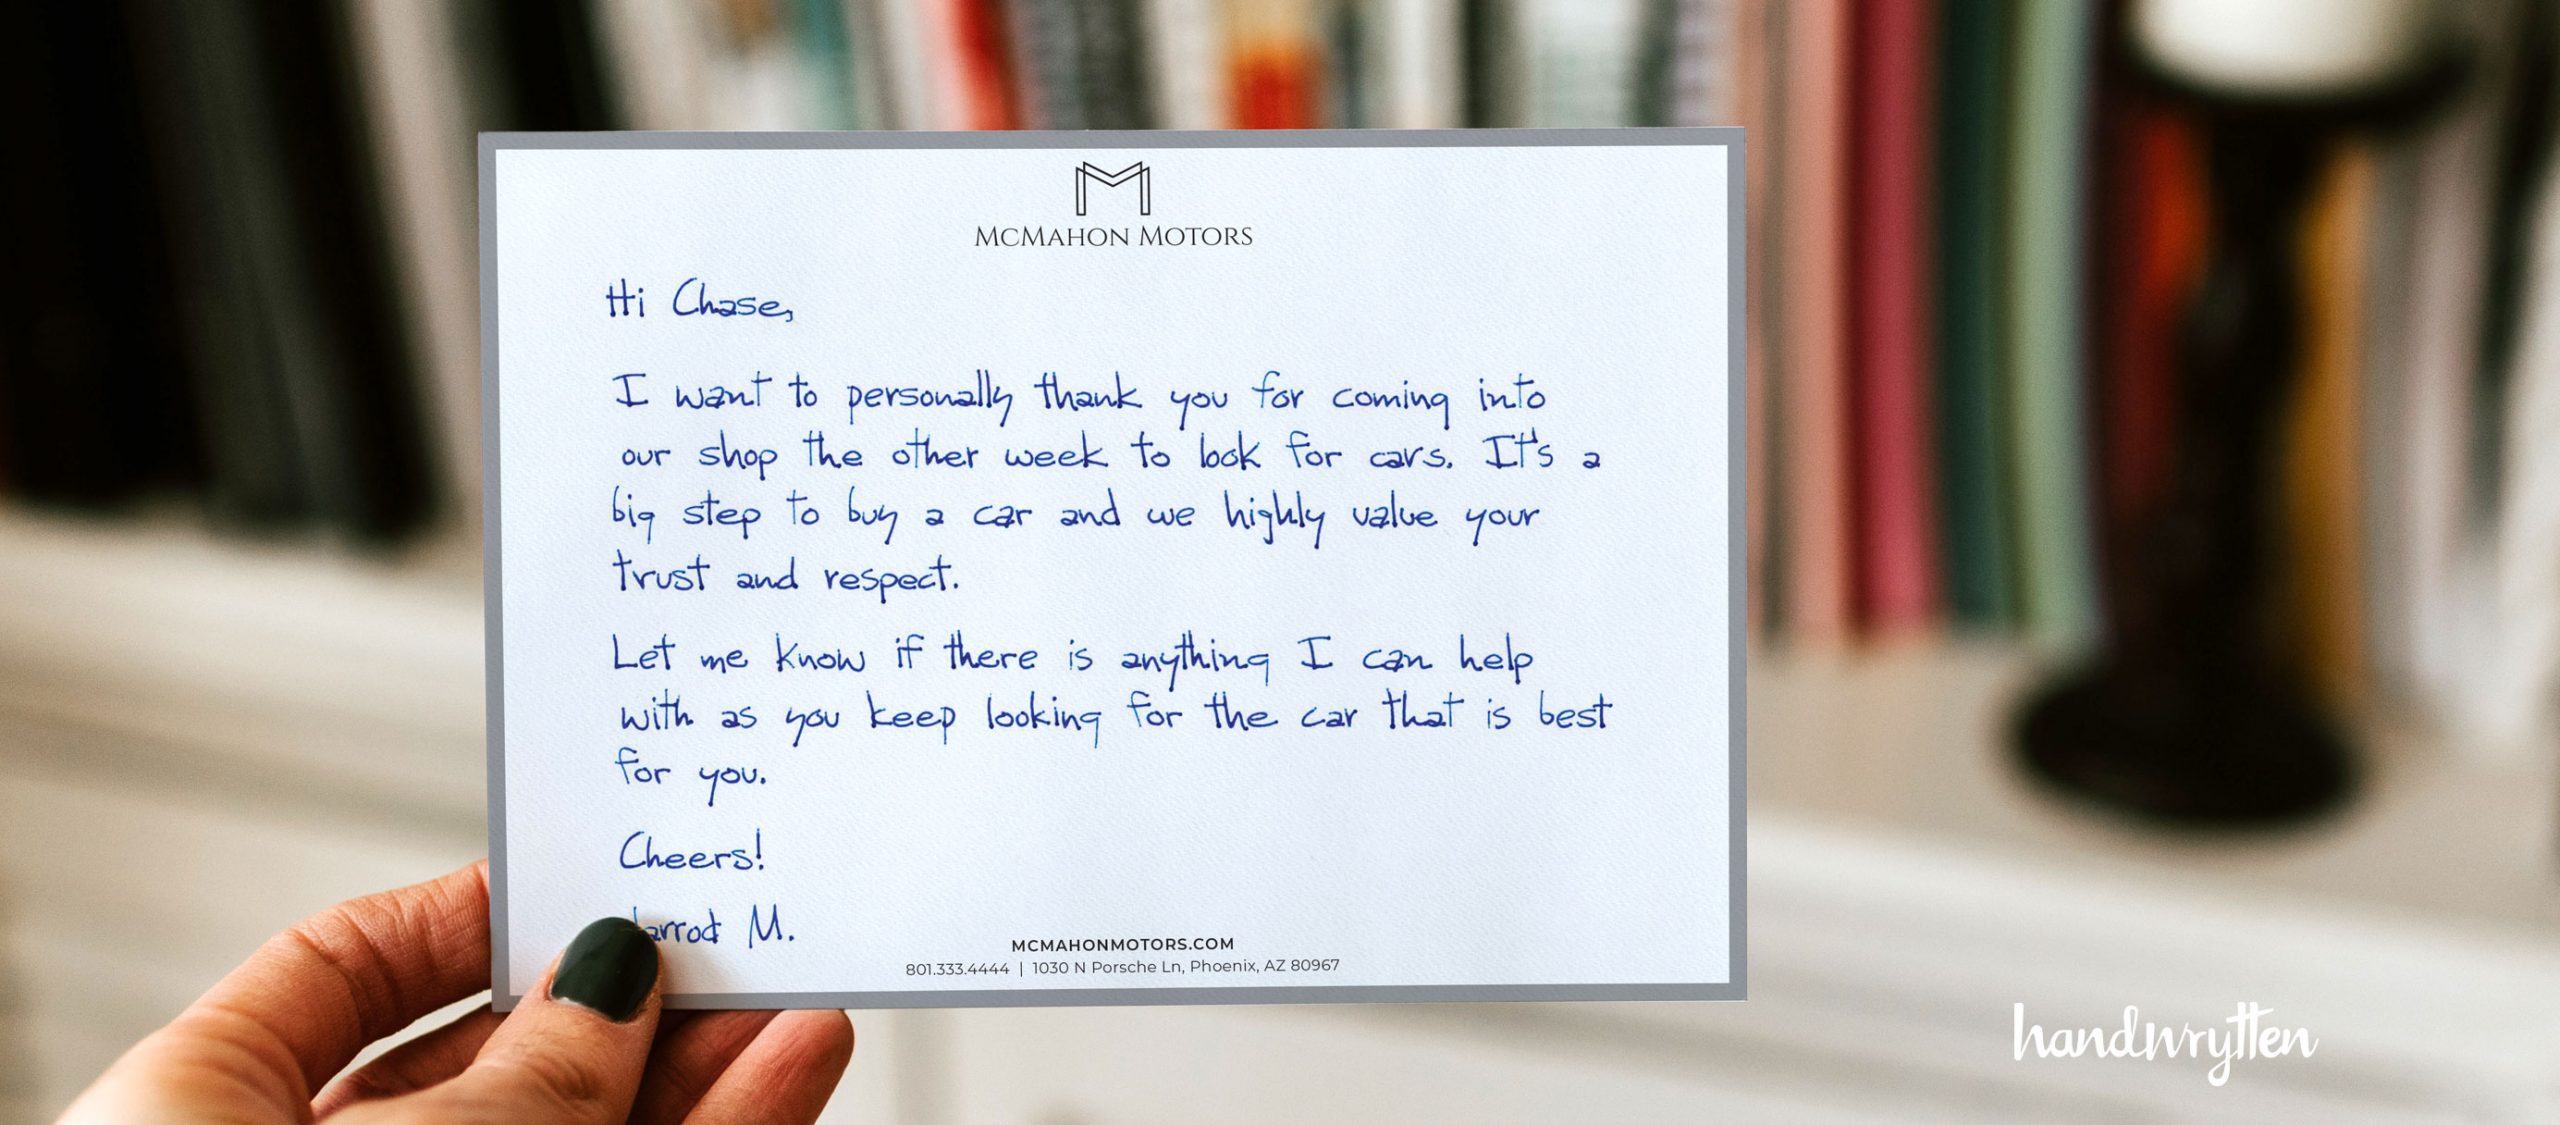 McMahon Motors
Hi Chase,
I want to personally thank you for coming into
our shop the other week to look for cars. It's a
big step to buy a car and we highly value your
trust and respect.
Let me know if there is anything I can help
with as you keep looking for the car that is best
for you.
Cheers!
M.
MCMAHONMOTORS.COM
801.333.4444 | 1030 N Porsche Ln, Phoenix, AZ 80967
handwrytten